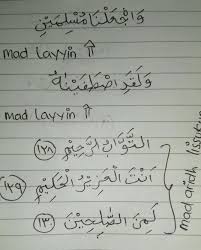 وَاجْعَلْنَا مُسْلِمَيْنِ
mad layyin ⇑
وَلَقَدِ اصْطَفَيْنَاهُ
mad layyin ⇑
التَّوَّابُ الرَّحِيْمُ ١٢٨
اَنْتَ الْعَزِيْزُ الْحَكِيْمُ ١٢٩
لَمِنَ الصّٰلِحِيْنَ ١٣٠
mad aridh